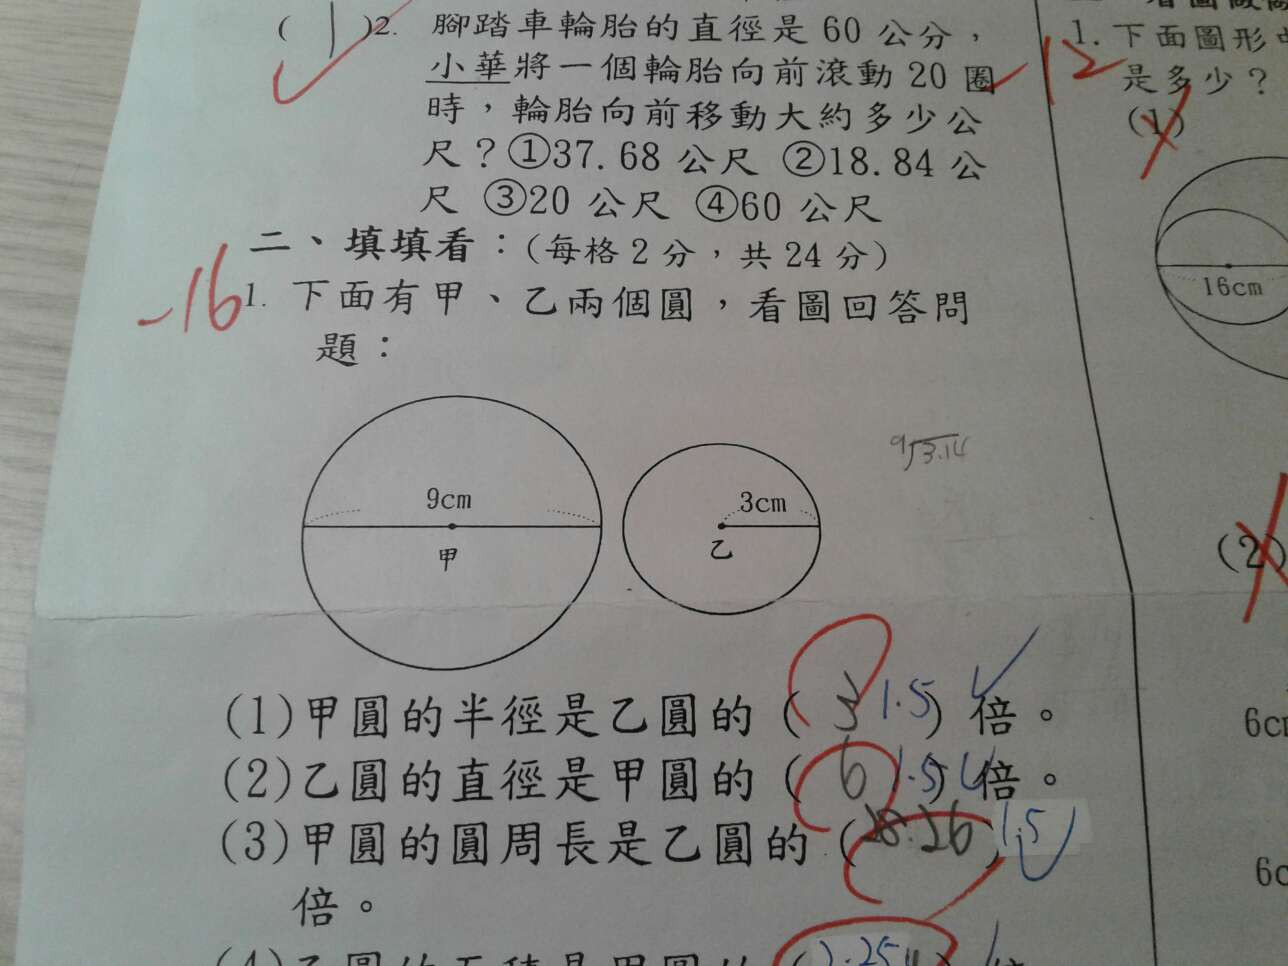 ( 1 )2. 腳踏車輪胎的直徑是 60 公分，
小華將一個輪胎向前滾動 20 圈
時，輪胎向前移動大約多少公
尺？①37.68 公尺 ②18.84 公
尺 ③20 公尺 ④60 公尺
二、填填看：（每格 2 分，共 24 分）
-16
1. 下面有甲、乙兩個圓，看圖回答問
題：
9cm
甲
3cm
乙
9 3.14
(1)甲圓的半徑是乙圓的 ( 3 1.5 ) 倍。
(2)乙圓的直徑是甲圓的 ( 6 1.5 ) 倍。
(3)甲圓的圓周長是乙圓的 ( 28.26 ) 1.5
倍。
(4)乙圓的面積是甲圓的 ( 2.25 ) 倍
-12
1. 下面圖形
是多少？
(1)
16cm
(2)